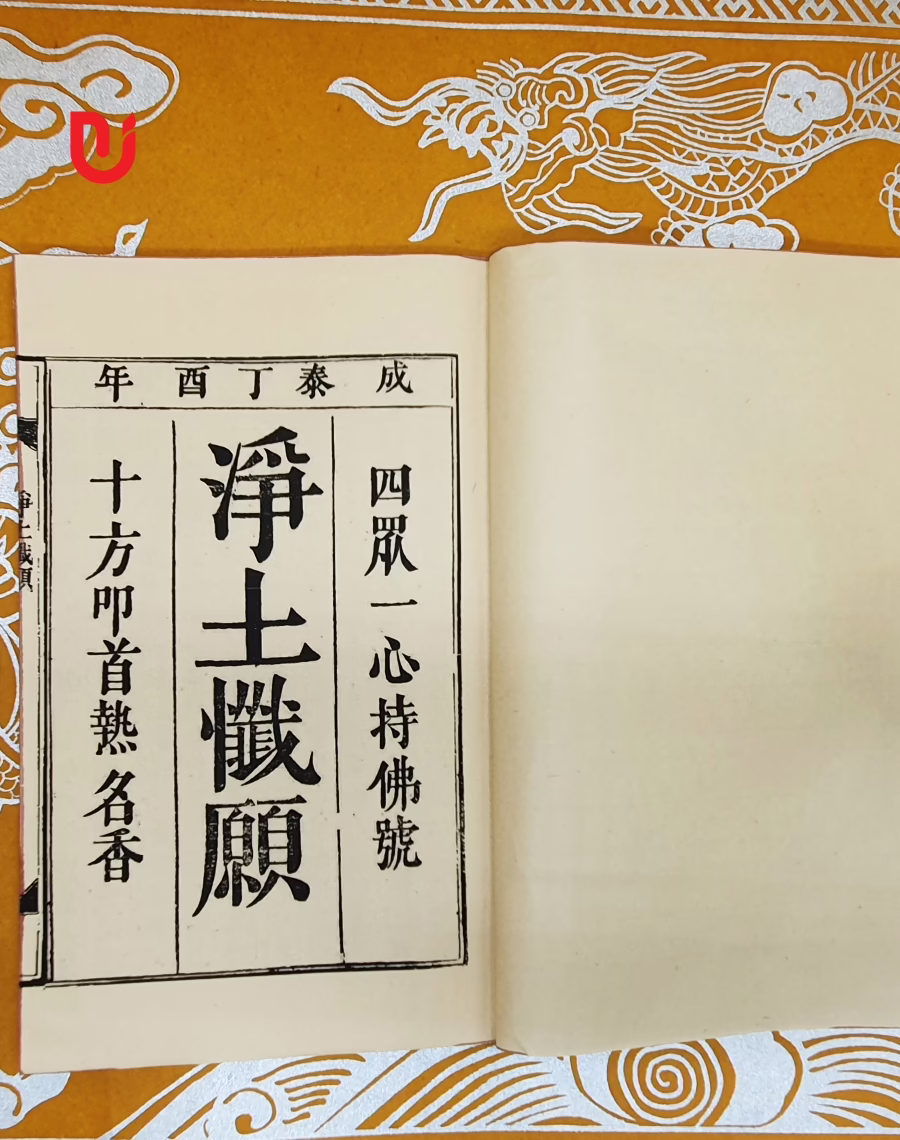 成泰丁酉年
四眾一心持佛號
淨土懺願
十方叩首熱名香
淨土懺願